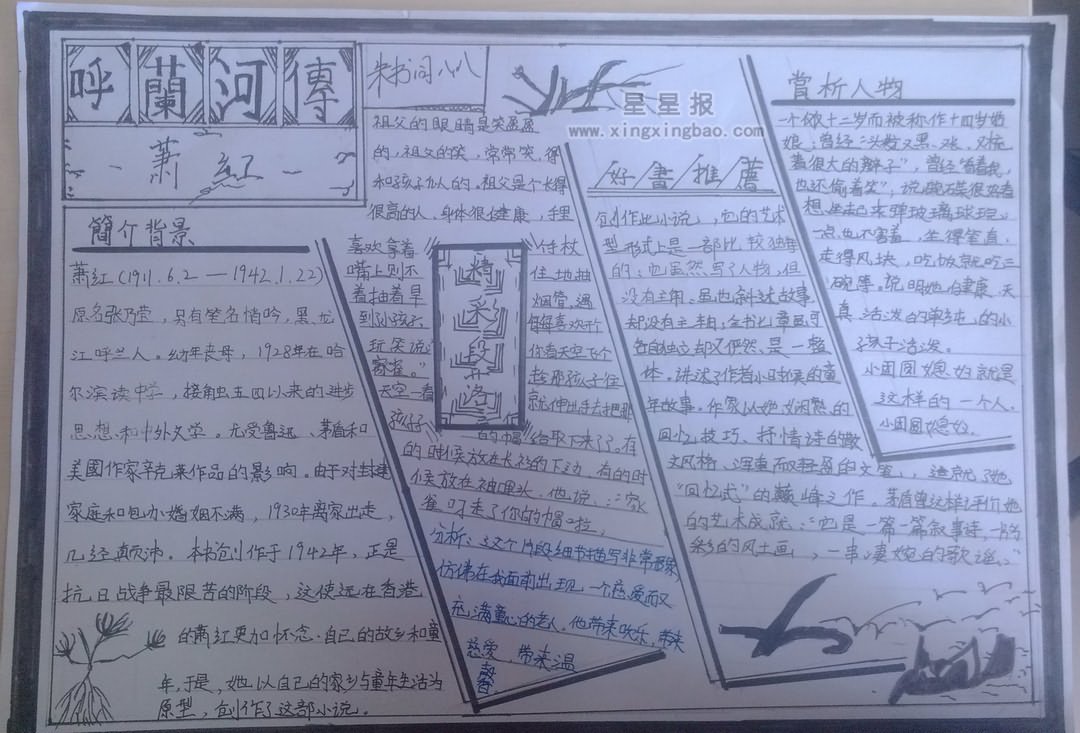 呼蘭河傳
·蕭紅·
簡介背景
萧红(1911.6.2—1942.1.22)
原名张乃莹,另有笔名悄吟,黑龙
江呼兰人。幼年丧母,1928年在哈
尔滨读中学,接触五四以来的进步
思想和中外文学。尤受鲁迅、茅盾和
美國作家辛克莱作品的影响。由于对封建
家庭和包办婚姻不满,1930年离家出走,
几经颠沛。本书创作于1942年,正是
抗日战争最限苦的阶段,这使远在香港
的萧红更加怀念自己的故乡和童
年,于是,她以自己的家乡与童年生活为
原型,创作了这部小说。
祖父的眼睛是笑盈盈
的,祖父的笑,常常笑得
和孩子似的。祖父是个长得
很高的人,身体很健康,手里
喜欢拿着
手杖
嘴上则不
住地抽
着抽着旱
烟管,遇
到小孩子,
每每喜欢开个
玩笑说:
你看天空飞个
家雀。"
趁那孩子往
天空一看
就伸出手去把那
孩子
的帽给取下来了。有
的时候放在长衫的下边,有的时
候放在袖里头。他说:"家
雀叼走了你的帽啦。
精彩段落
分析:这个片段细节描写非常形象,
仿佛在我面前出现一个慈爱而又
充满童心的老人。他带来欢乐,带来
慈爱,带来温
馨
星星报
www.xingxingbao.com
好書推薦
创作此小说,它的艺术
型形式上是一部比较独特
的:它虽然写了人物,但
没有主角;虽也叙述故事
却没有主轴;全书七章虽可
各自独立却又俨然是一整
体。讲述了作者小时候的童
年故事。作家以她娴熟的
回忆技巧、抒情诗的散
文风格、浑重而轻盈的文笔,造就了她
"回忆式"的巅峰之作。茅盾曾这样评价她
的艺术成就:"它是一篇叙事诗,一片多
彩的风土画,一串凄婉的歌谣。"
赏析人物
一个仅十二岁而被称作十四岁姑
娘,曾经"头发又黑又长,梳
着很大的辫子",曾经"看看我,
也还偷着笑",说
想坐起来弹玻璃球玩。
一点也不害羞,坐得笔直,
走得风快,吃饭就吃三
碗等。说明她健康、天
真、活泼的单纯的小
孩子活泼。
小团圆媳妇就是
这样的一个人。
小团圆媳妇。